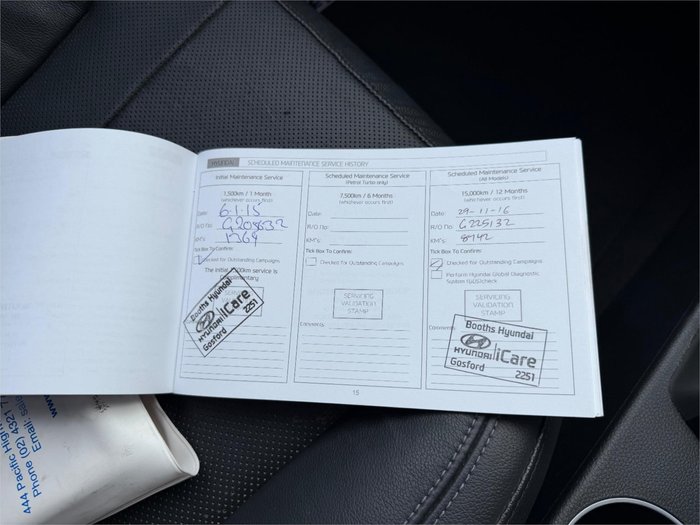 HYUNDAI SCHEDULED MAINTENANCE SERVICE HISTORY
Initial Maintenance Service
1,500km / 1 Month
(whichever occurs first)
Date: 6.1.15
R/O No:
KM's: 1364
Tick Box To Confirm:
Checked for Outstanding Campaigns
The Initial 1,500km service is
Complimentary
Booths Hyundai
HYUNDAI iCare
Gosford 2251
Scheduled Maintenance Service
(Petrol Turbo only)
7,500km / 6 Months
(whichever occurs first)
Date:
R/O No:
KM's:
Tick Box To Confirm:
Checked for Outstanding Campaigns
SERVICING
VALIDATION
STAMP
Comments:
Scheduled Maintenance Service
(All Models)
15,000km / 12 Months
(whichever occurs first)
Date: 29-11-16
R/O No: G225132
KM's: 8942
Tick Box To Confirm:
Checked for Outstanding Campaigns
Perform Hyundai Global Diagnostic
System (GDS)check
SERVICING
VALIDATION
STAMP
Comments:
Booths Hyundai
HYUNDAI iCare
Gosford 2251
15
444 Pacific High
Phone (02) 4321
Email: sal